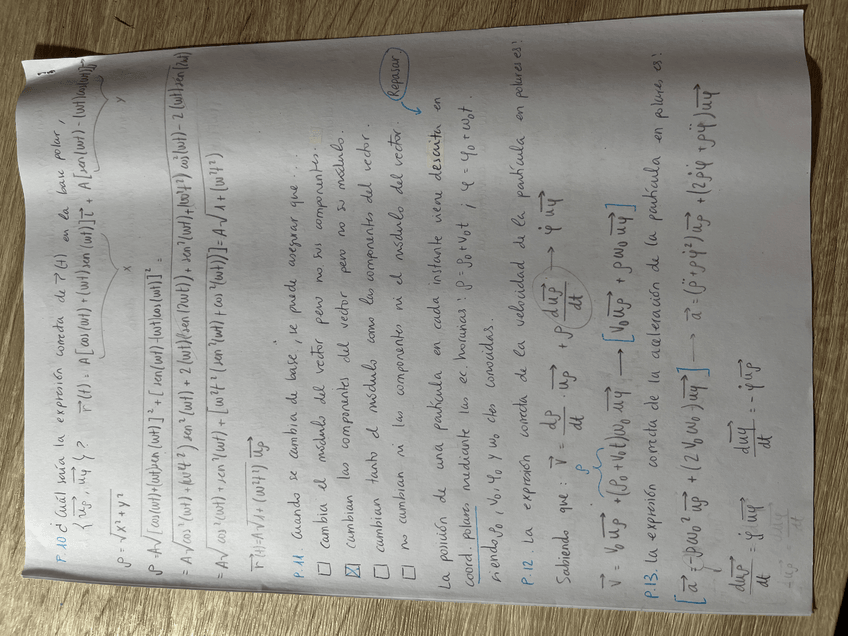 P.10 ¿Cuál sería la expresión correcta de r⃗(t) en la base polar,
{u⃗ρ, u⃗φ}? r⃗(t) = A[cos(ωt) + (ωt)sen(ωt)]i⃗ + A[sen(ωt) - (ωt)cos(ωt)]j⃗
x y
ρ = √x²+y²
ρ = A√[cos(ωt)+(ωt)sen(ωt)]² + [sen(ωt)-(ωt)cos(ωt)]² =
= A√cos²(ωt) + sen²(ωt) + [ω²t²(sen²(ωt) + cos²(ωt))] = A√1+(ω²t²)
r⃗(t) = A√1+(ω²t²) u⃗ρ
P.11. Cuando se cambia de base, se puede asegurar que...
☐ cambia el módulo del vector pero no sus componentes.
☒ cambian las componentes del vector pero no su módulo.
☐ cambian tanto el módulo como las componentes del vector.
☐ no cambian ni las componentes ni el módulo del vector. Repasar.
La posición de una partícula en cada instante viene descrita en
coord. polares mediante las ec. horarias: ρ = ρ0 + v0t ; φ = φ0 + ω0t.
siendo ρ0, v0, φ0 y ω0 ctes conocidas.
P.12. La expresión correcta de la velocidad de la partícula en polares es:
Sabiendo que: v⃗ = dρ/dt · u⃗ρ + ρ du⃗ρ/dt → φ̇ u⃗φ
ρ
v⃗ = V0 u⃗ρ + (ρ0 + V0t)ω0 u⃗φ → [V0 u⃗ρ + ρω0 u⃗φ]
P.13. La expresión correcta de la aceleración de la partícula en polares es:
[a⃗ = -ρω0² u⃗ρ + (2V0ω0) u⃗φ] → a⃗ = (ρ̈ + ρφ̇²)u⃗ρ + (2ρ̇φ̇ + ρφ̈)u⃗φ
du⃗ρ/dt = φ̇ u⃗φ du⃗φ/dt = -φ̇ u⃗ρ